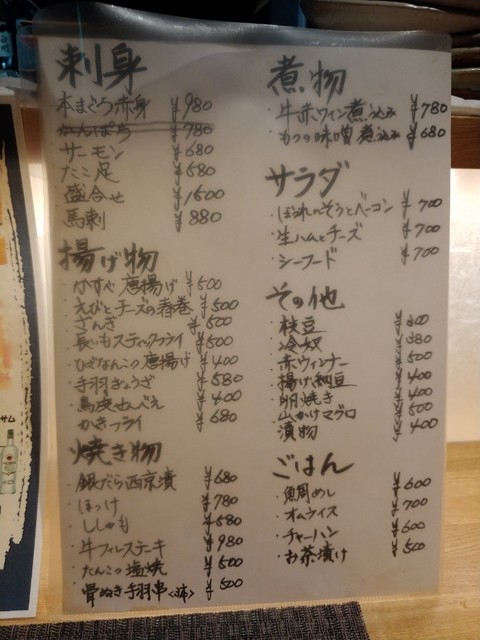 刺身
本まぐろ赤身 ¥980
かんぱち ¥780
サーモン ¥680
たこ足 ¥580
盛合せ ¥1500
馬刺 ¥880
揚げ物
かすべ唐揚げ ¥500
えびとチーズの春巻 ¥500
ざんぎ ¥500
長いもスティックフライ ¥500
ひざなんこつ唐揚げ ¥400
・手羽ぎょうざ ¥580
・鳥皮せんべえ ¥400
かきフライ ¥680
焼き物
・銀だら西京漬 ¥680
・ほっけ ¥780
・ししゃも ¥580
・牛フィレステーキ ¥980
・たんこつ塩焼 ¥500
・骨ぬき手羽串 ¥500
煮物
・牛赤ワイン煮込み ¥780
・もつの味噌煮込み ¥680
サラダ
・ほうれんそうとベーコン ¥700
・生ハムとチーズ ¥700
・シーフード ¥700
その他
・枝豆
・冷奴 ¥380
・赤ウィンナー ¥500
・揚げ納豆 ¥400
・明焼き ¥400
・山かけマグロ ¥500
・漬物 ¥400
ごはん
・鯛めし ¥600
・オムライス ¥700
・チャーハン ¥600
・お茶漬け ¥500
サム